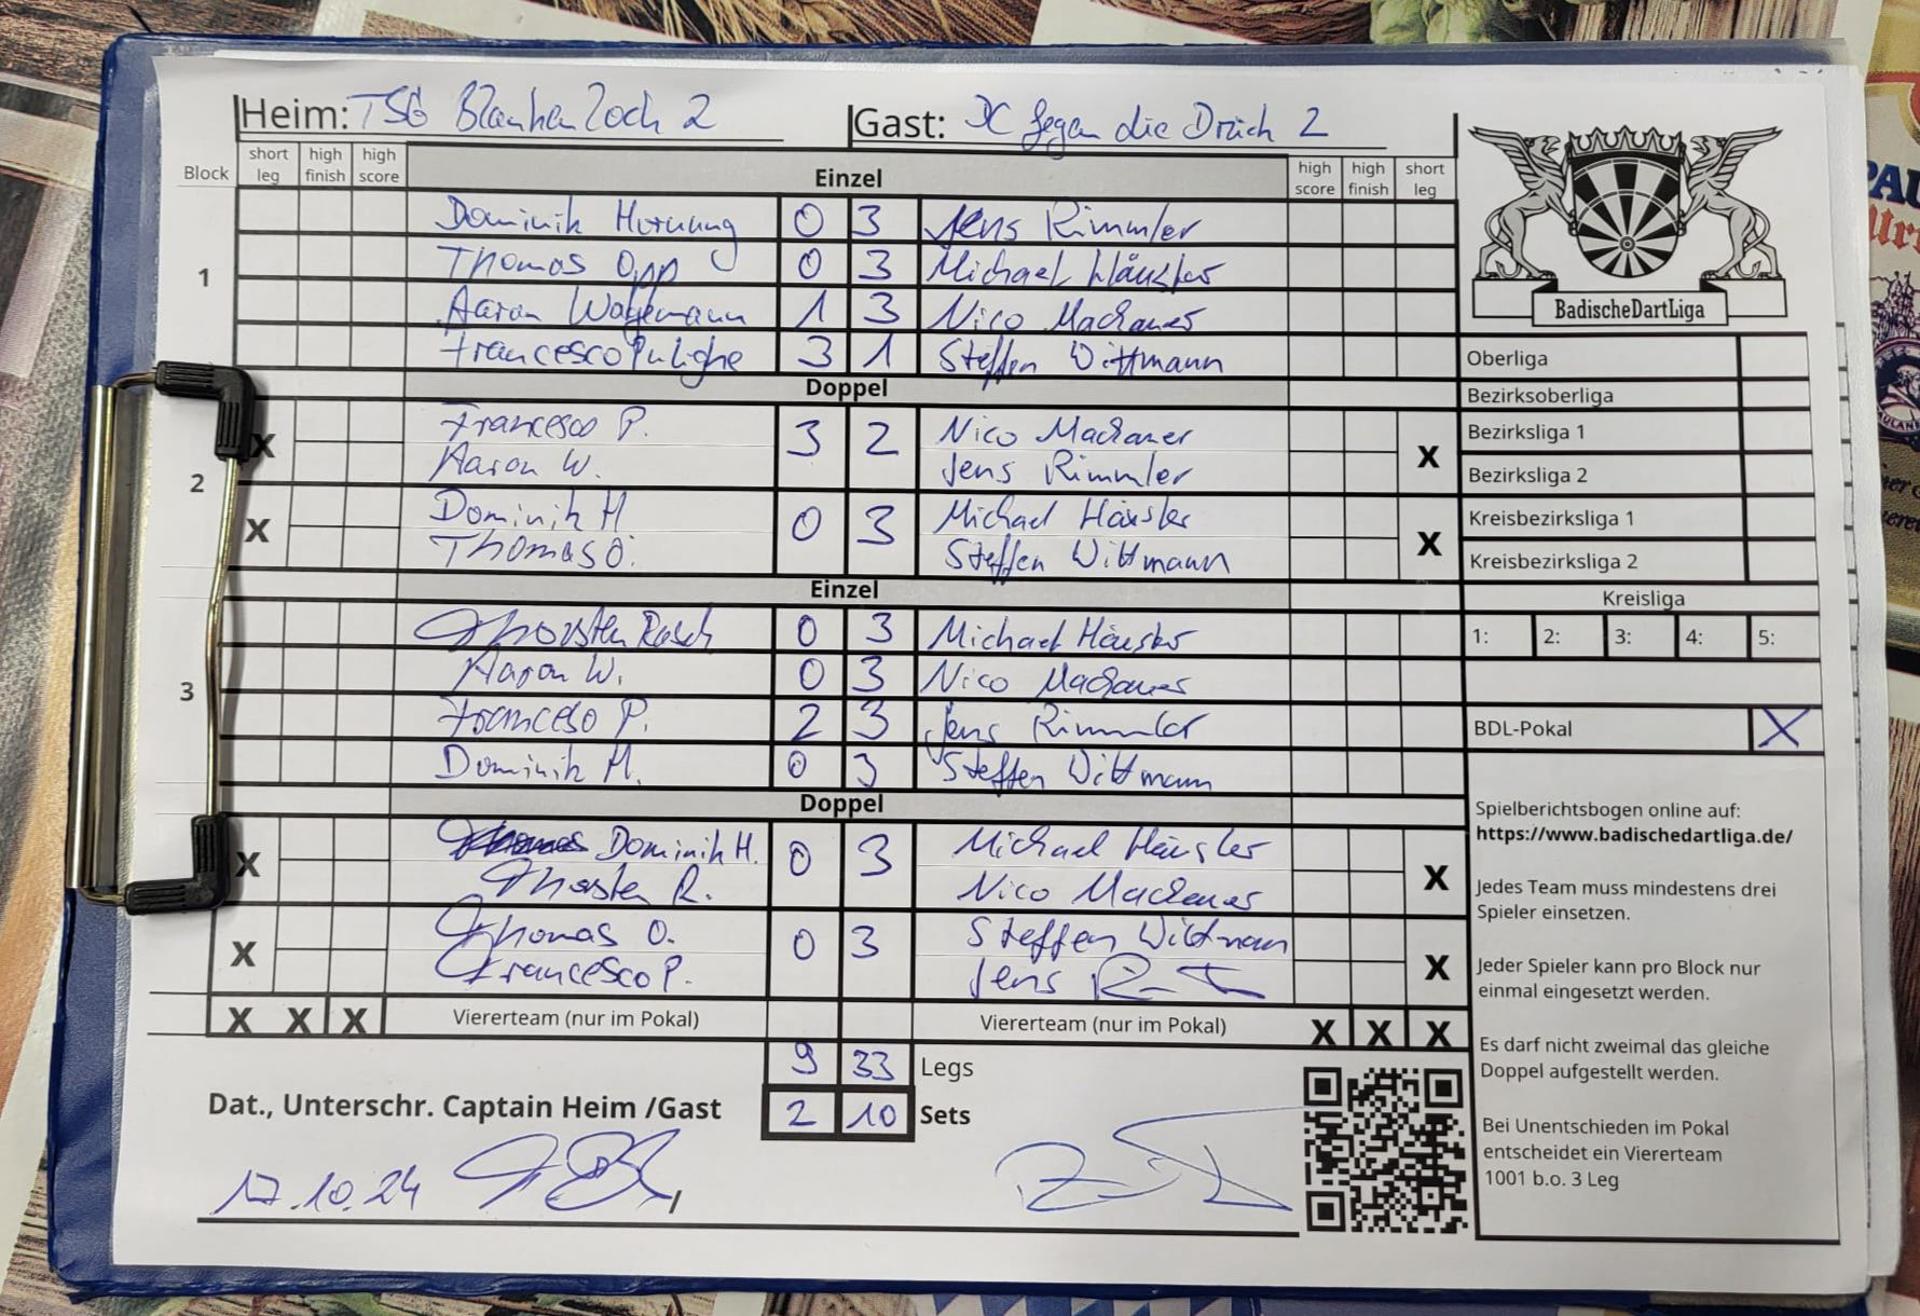 Heim: TSG Blankenloch 2 Gast: DC Gegen die Dräch 2
Block short leg high finish high score Einzel high score high finish short leg
1
Dominik Hornung 0 3 Jens Rimmler
Thomas Opp 0 3 Michael Häusler
Aaron Wagemann 1 3 Nico Machauer
Francesco Pulighe 3 1 Steffen Wittmann
Doppel
2
X Francesco P. 3 2 Nico Machauer X
Aaron W. Jens Rimmler
X Dominik H 0 3 Michael Häusler X
Thomas O. Steffen Wittmann
Einzel
3
Thorsten Rasch 0 3 Michael Häusler
Aaron W. 0 3 Nico Machauer
Francesco P. 2 3 Jens Rimmler
Dominik H. 0 3 Steffen Wittmann
Doppel
X Dominik H. 0 3 Michael Häusler X
Thorsten R. Nico Machauer
X Thomas O. 0 3 Steffen Wittmann X
Francesco P. Jens
X X X Viererteam (nur im Pokal) Viererteam (nur im Pokal) X X X
9 33 Legs
2 10 Sets
Dat., Unterschr. Captain Heim /Gast
17.10.24
BadischeDartLiga
Oberliga
Bezirksoberliga
Bezirksliga 1
Bezirksliga 2
Kreisbezirksliga 1
Kreisbezirksliga 2
Kreisliga
1: 2: 3: 4: 5:
BDL-Pokal X
Spielberichtsbogen online auf:
https://www.badischedartliga.de/
Jedes Team muss mindestens drei
Spieler einsetzen.
Jeder Spieler kann pro Block nur
einmal eingesetzt werden.
Es darf nicht zweimal das gleiche
Doppel aufgestellt werden.
Bei Unentschieden im Pokal
entscheidet ein Viererteam
1001 b.o. 3 Leg